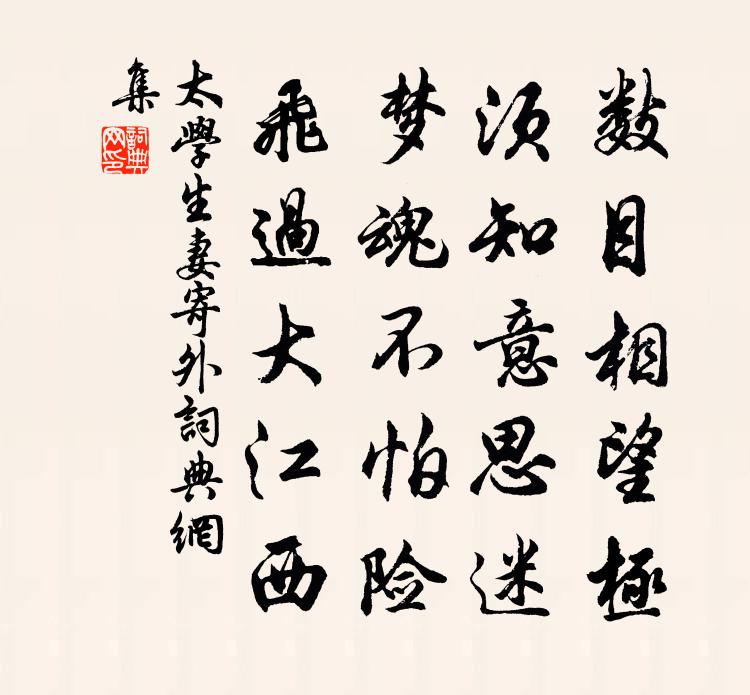 数目相望極
须知意思迷
梦魂不怕险
飛過大江西
太學生妻寄外詞典網
集
詞典網印